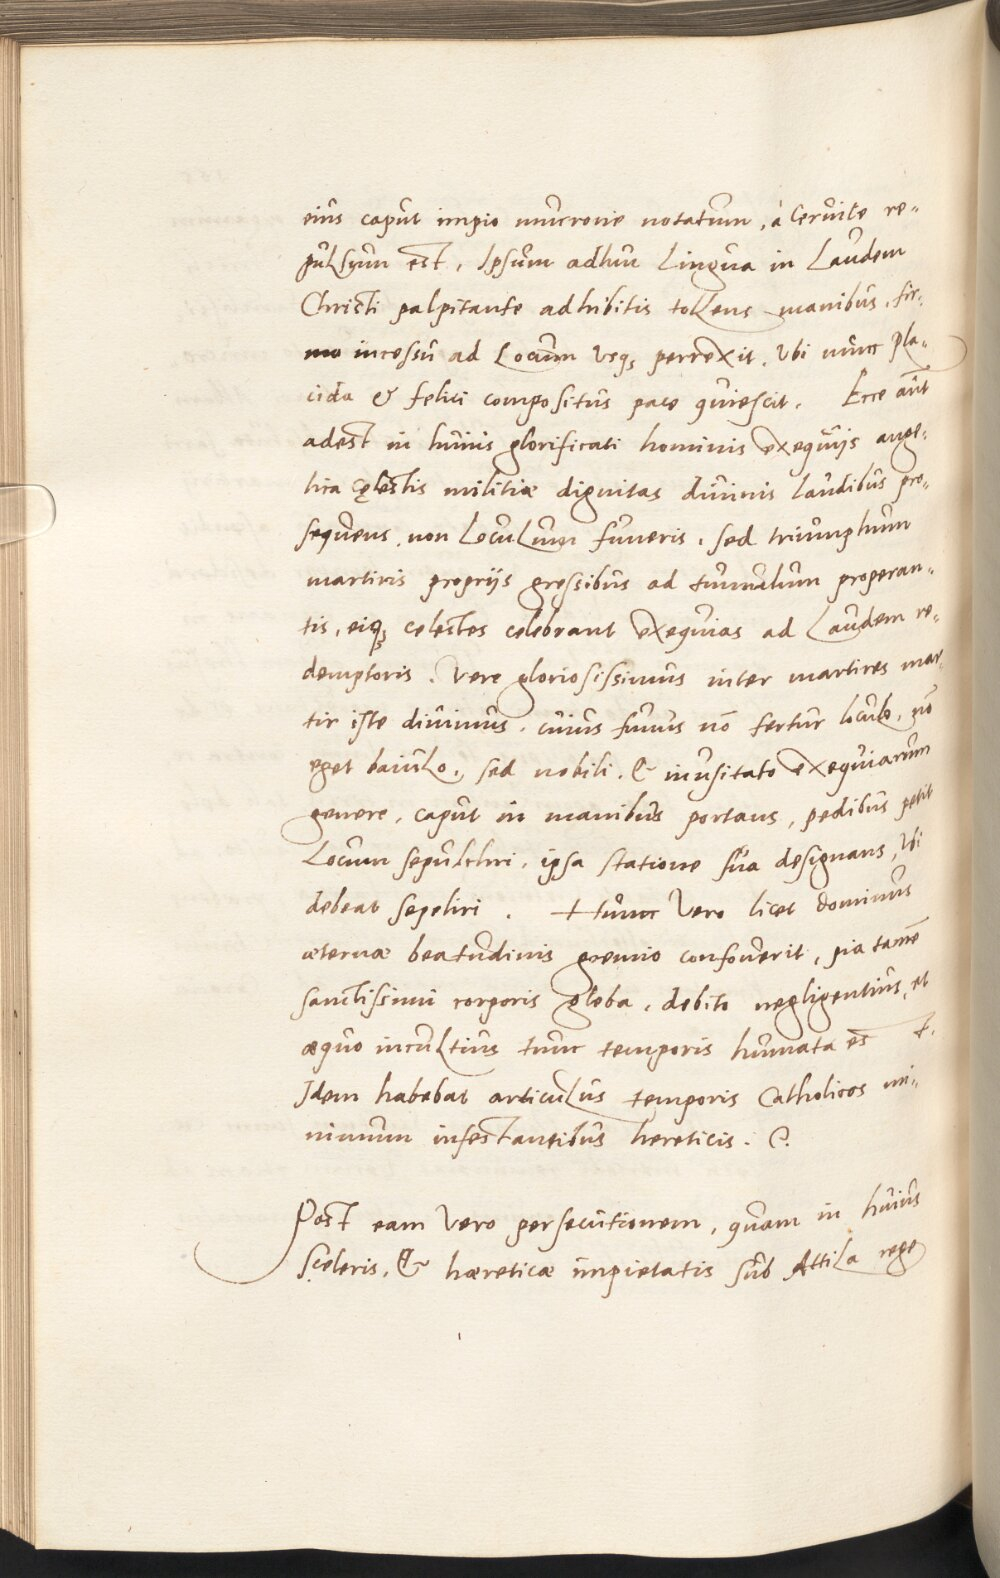 eius caput impio mucrone notatum, à Ceruice re-
pulsum est, Ipsum adhuc Lingua in Laudem
Christi palpitante adhibitis tollens manibus, fir-
mo incessu ad Locum usq₃ perrexit, Vbi nunc pla-
cida & felici compositus pace quiescit. Ecce aūt
adest in huius glorificati hominis exequijs ange-
lica cęlestis militiæ dignitas diuinis laudibus pro-
sequens, non Loculum funeris, sed triumphum
martiris proprijs gressibus ad tumulum properan-
tis, eiq₃ celestes celebrant exequias ad Laudem re-
demptoris. Vere gloriosissimus inter martires mar-
tir iste diuinus, cuius funus nō fertur loculo, nō
eget baiulo, sed nobili, & inusitato exequiarum
genere, caput in manibus portans, pedibus petit
Locum sepulchri, ipsa statione sua designans, Vbi
debeat sepeliri. Hunc Vero licet dominus
æternæ beatudinis gremio confouerit, pia tamē
sanctissimi corporis gleba, debito negligentius, et
æquo incultius tunc temporis humata est.
Idem habebat articulus temporis Catholicos ni-
mium infestantibus hereticis. &.
Post eam Vero persecutionem, quam in huius
sceleris, & hæreticæ impietatis sub Attila rege